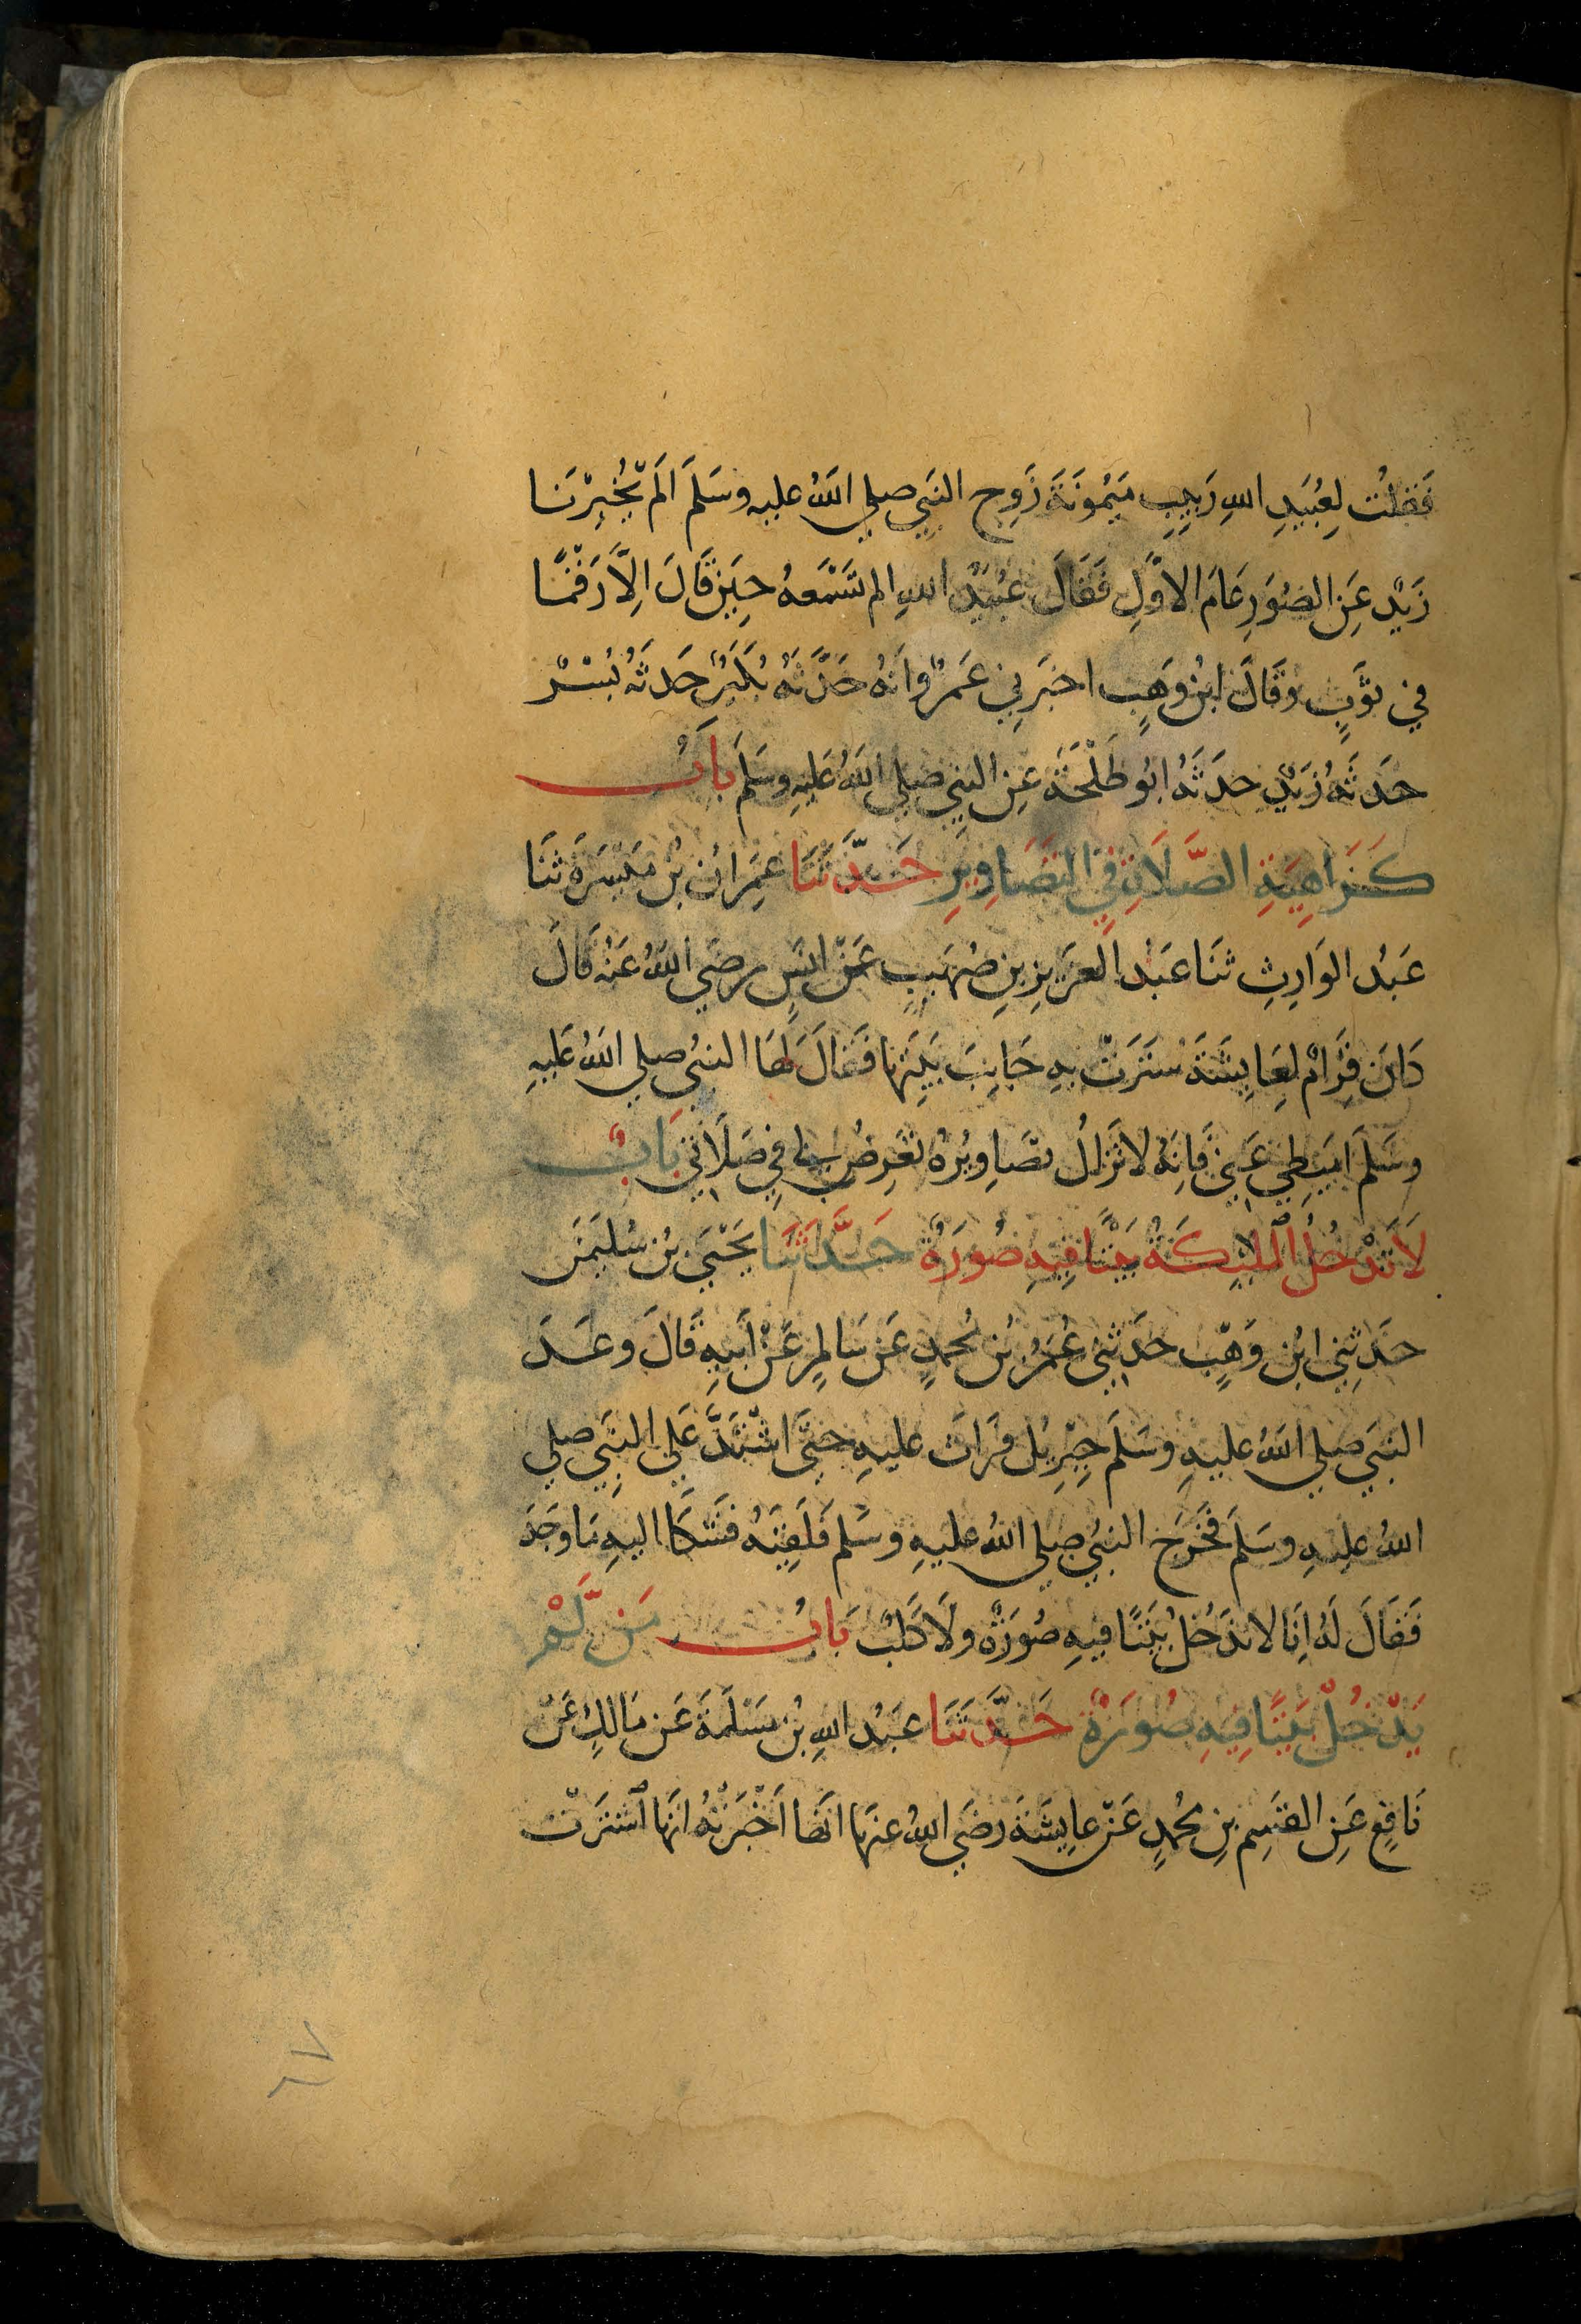 فَقُلْتُ لِعُبَيْدِ اللهِ رَبِيبِ مَيْمُونَةَ زَوْجِ النَبِي صلى اللهُ عليه وسَلمَ الَم يُخْبِرْنَا
زَيْد عَنِ الصُوَرِ عَامَ الاوَّلِ فَقَالَ عُبَيْدُ اللهِ الم تَسْمَعهُ حِينَ قَالَ اِلاَّ رَقْمًا
في ثَوبٍ وقَالَ ابنُ وَهبٍ اخبَرنِي عَمرٌو انَهُ حَدَّثَهُ بُكَيرٌ حَدثَهُ بُسْرٌ
حدَثَهُ زَيدٌ حدَثَهُ ابُو طَلْحَةَ عَنِ النبِي صلى اللهُ عَليهِ وسَلمَ بابُ
كَرَاهِيَةِ الصَّلَاةِ فِي التَصَاوِيرِ حَدَّثَنَا عِمرَانُ بْنُ مَيْسَرَةَ ثنَا
عَبدُ الوَارِثِ ثنَا عَبدُ العَزيزِ بنِ صُهَيبٍ عَنْ انَسٍ رضَي اللهُ عَنْهُ قَالَ
كَانَ قِرَامٌ لِعَايِشَةَ سَتَرَتْ بهِ جَانِبَ بَيتِهَا فَقَالَ لَهَا النبيُ صلى اللهُ عَليهِ
وسَلمَ امِيطِي عَنِي فَانِهُ لا تَزالُ تصَاوِيرُهُ تَعرِضُ لِي في صَلَاتي بَابٌ
لاَ تَدْخُلُ المليِكَةُ بَيْتًا فِيهِ صُورَةٌ حَدَّثَنَا يَحْيَى بْن سُلَيمَنَ
حدَثِني ابْن وَهبٍ حدَثَنِي عُمَرُ بْن مُحمدٍ عَن سَالِمٍ عَنْ أبيهِ قَالَ وعَدَ
النبيَ صلى اللهُ عليهِ وسَلمَ جِبرِيل فرَاثَ عليهِ حتَّى اشْتَدَّ عَلَى النبِي صلى
اللهُ عليهِ وسَلمَ فخَرجَ النبيُ صلى اللهُ عليهِ وسَلم فَلَقِيَهُ فشَكَا اليهِ مَا وجَدَ
فَقَالَ لَهُ اِنَا لا ندخُلُ بَيتًا فيهِ صُورَةٌ ولَا كَلبٌ بَابُ مَن لَّمْ
يَدْخُلْ بَيْتًا فِيهِ صُورَةٌ حَدَّثَنَا عَبدُ اللهِ بْن مَسْلَمَةَ عَن مَالِكٍ عَنْ
نَافِعٍ عَنِ القسِم بنِ مُحمدٍ عَنْ عايِشَةَ رضَي اللهُ عنهَا انهَا اَخْبَرَتْهُ انهَا اشْتَرَتْ